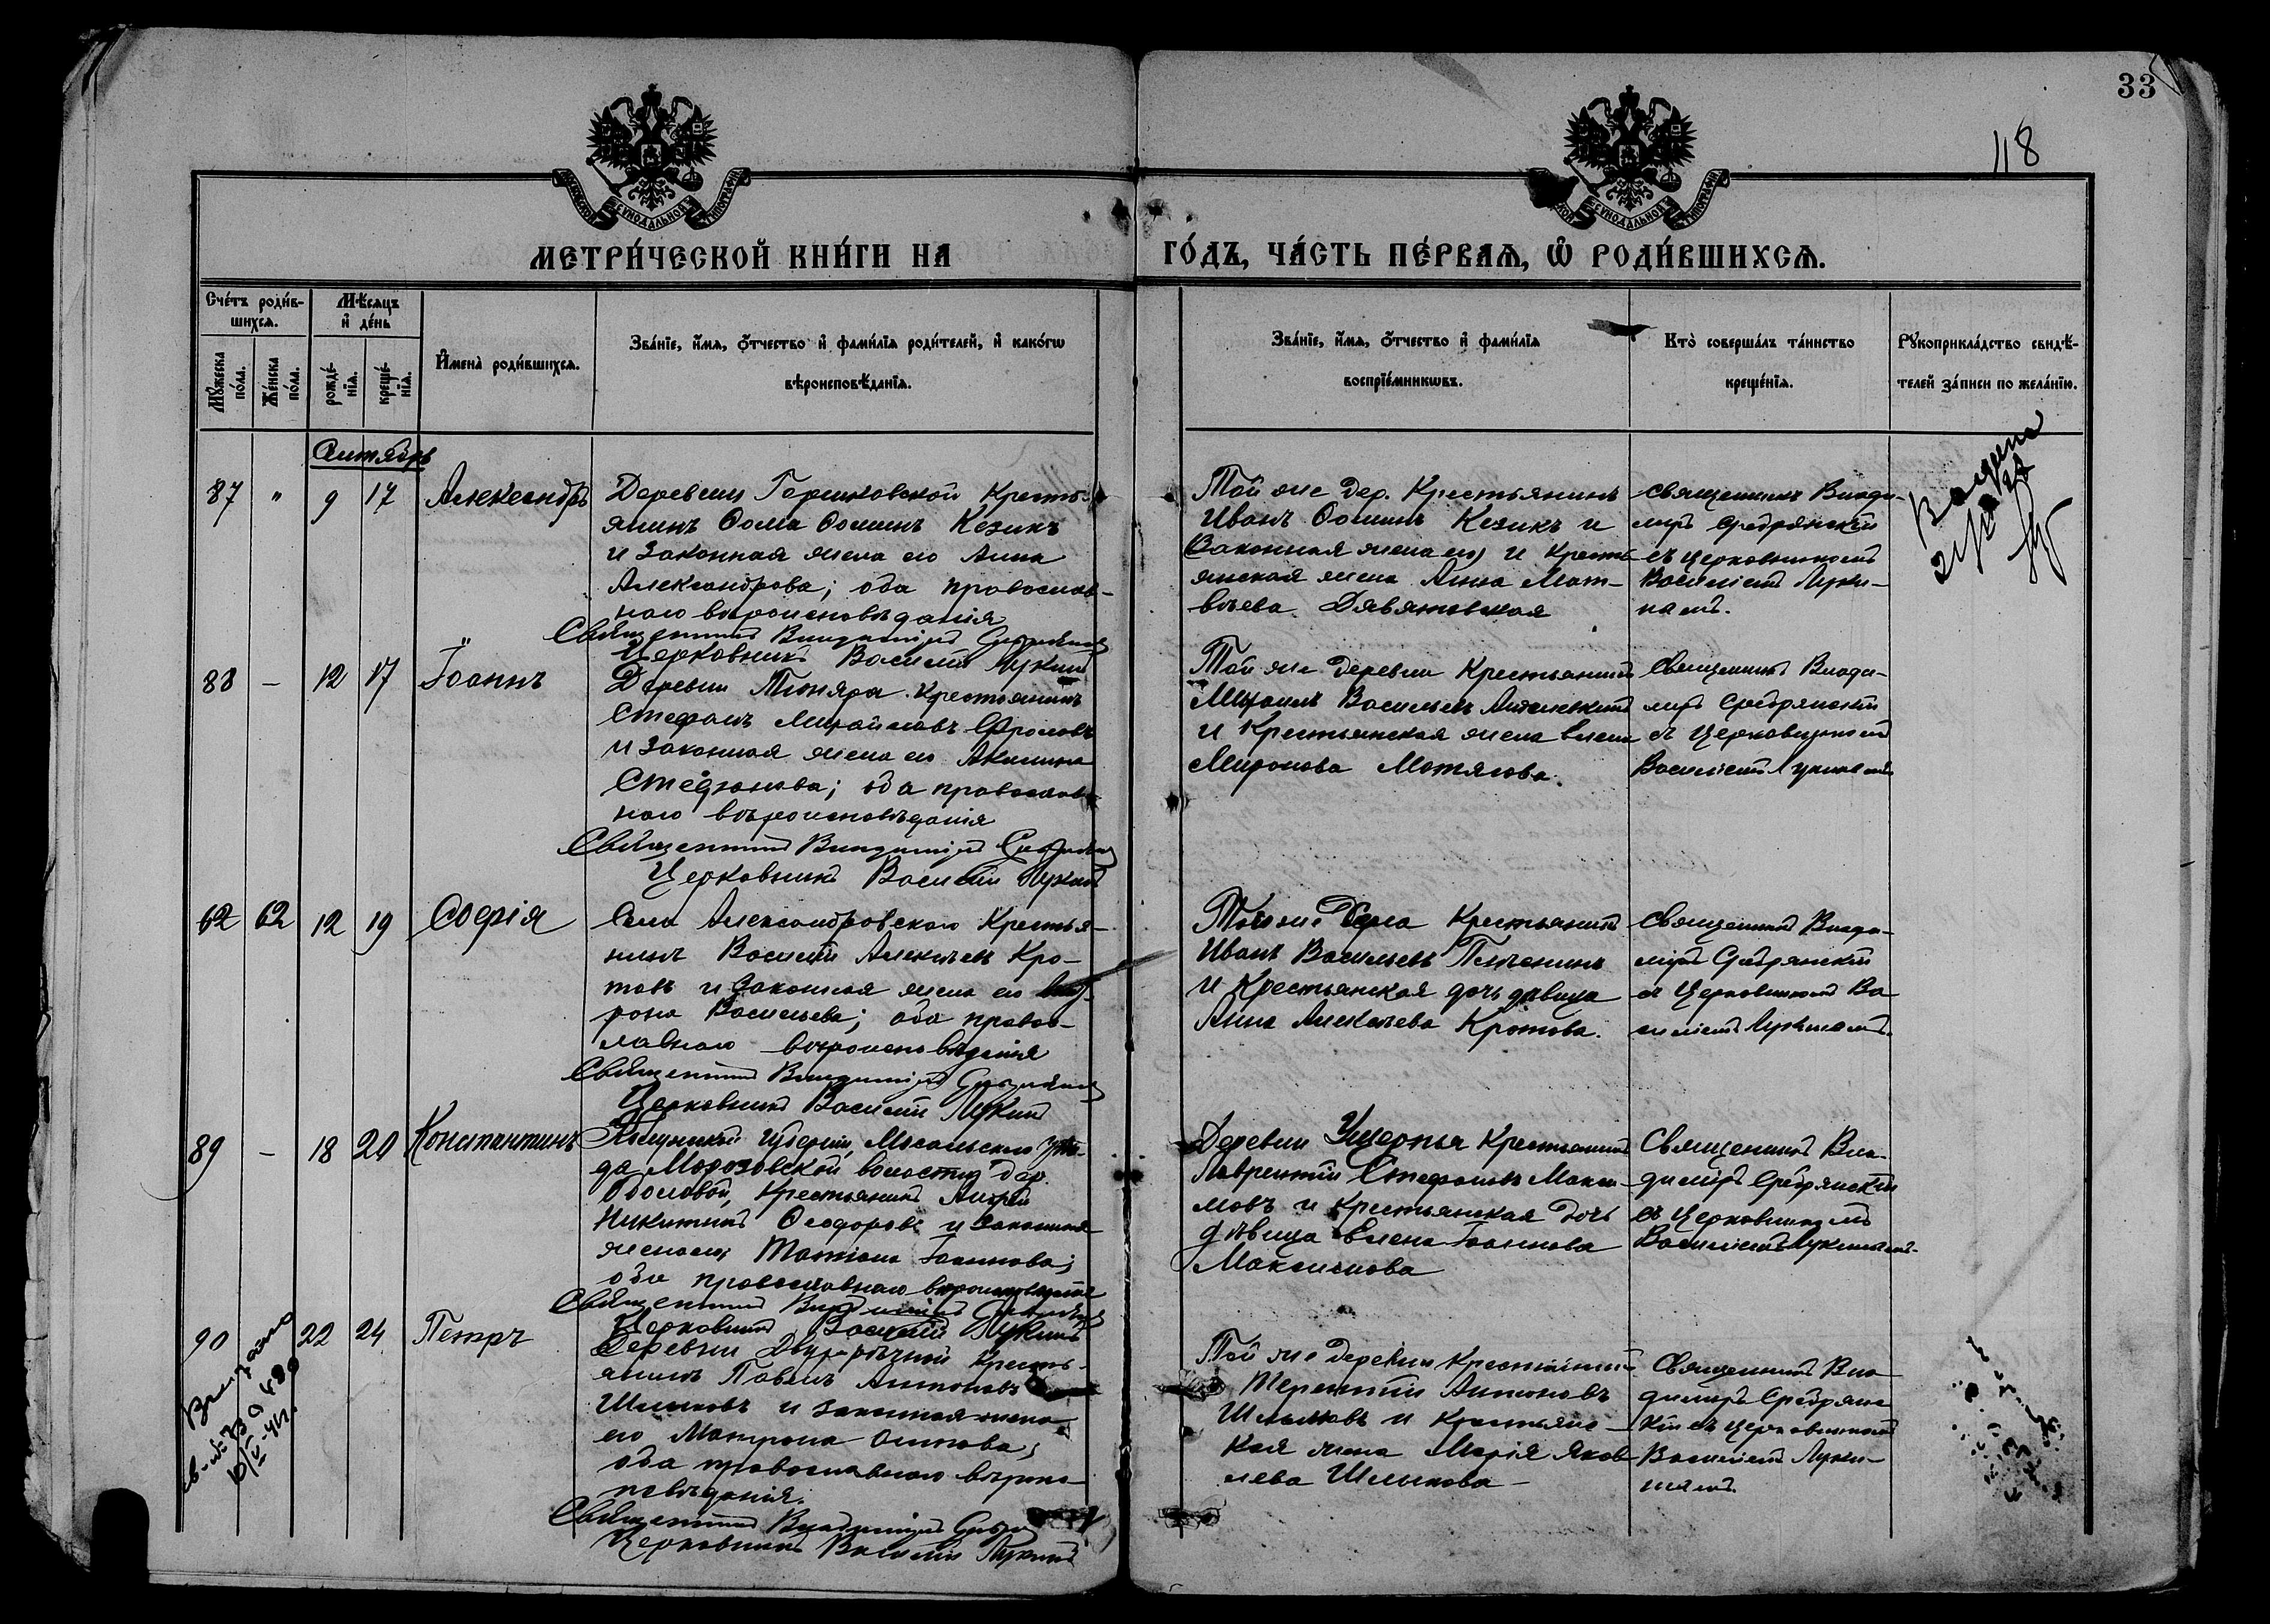 33
118
МЕТРИ́ЧЕСКОЙ КНИ́ГИ НА
ГО́ДЪ, ЧА́СТЬ ПЕ́РВАѦ, Ѡ РОДИ́ВШИХСѦ.
Сче́тъ роди́в-
шихсѧ.
Мѣ́сѧцъ
и҆ де́нь
Мꙋ́жеска
по́ла.
Же́нска
по́ла.
рожде́-
нїѧ.
креще́-
нїѧ.
И҆мена̀ роди́вшихсѧ.
Зва́нїе, и҆́мѧ, ѻ҆́тчество и҆ фами́лїѧ роди́телей, и҆ како́гѡ
вѣроисповѣ́данїѧ.
Зва́нїе, и҆́мѧ, ѻ҆́тчество и҆ фами́лїѧ
воспрїе́мникѡвъ.
Кто̀ соверша́лъ та́инство
креще́нїѧ.
Рꙋкоприкла́дство свидѣ́-
телей за́писи по жела́нїю.
Сентябрь
87 " 9 17 Александръ
Деревни Кресть-
янинъ Ѳома Ѳоминъ Козикъ
и законная жена его Анна
Александрова; оба православ-
наго вѣроисповѣданія
Священникъ Владиміръ Сребрянскій
Церковникъ Василій Лукинъ
Той же дер. Крестьянинъ
Иванъ Ѳоминъ Козикъ и
(законная жена его) и кресть-
янская жена Анна Мат-
вѣева
Священникъ Влади-
міръ Сребрянскій
съ церковникомъ
Василіемъ Луки-
намъ.
88 — 12 17 Іоаннъ
Деревни крестьянинъ
Стефанъ Михайловъ
и законная жена его Акилина
Стефанова; оба православ-
наго вѣроисповѣданія
Священникъ Владиміръ Сребрянскій
Церковникъ Василій Лукинъ
Той же деревни Крестьянинъ
Михаилъ Васильевъ
и Крестьянская жена Елена
Миронова Мотясова.
Священникъ Влади-
міръ Сребрянскій
съ Церковникомъ
Василіемъ Лукинамъ
62 62 12 19 Софія
Села Александровскаго Крестья-
нинъ Василій Алексѣевъ Кро-
товъ и законная жена его
Васильева; оба правос-
лавнаго вѣроисповѣданія
Священникъ Владиміръ Сребрянскій
Церковникъ Василій Лукинъ
Того же Села Крестьянинъ
Иванъ Васильевъ
и Крестьянская дочь дѣвица
Анна Алексѣева Кротова.
Священникъ Влади-
міръ Сребрянскій
съ Церковникомъ Ва
силіемъ Лукинамъ.
89 — 18 20 Константинъ
губерніи, Мосальскаго уѣз-
да Морозовской волости, дер.
Крестьянинъ Андрей
Никитинъ Ѳеодоровъ и законная
жена его Татіана Іоаннова;
оба православнаго вѣроисповѣданія
Священникъ Владиміръ Сребрянскій
Церковникъ Василій Лукинъ
Деревни Ущерпья Крестьянинъ
Лаврентій Стефановъ Макси-
мовъ и Крестьянская дочь
дѣвица Елена Іоаннова
Максимова
Священникъ Вла-
диміръ Сребрянскій
съ Церковникомъ
Василіемъ Лукинамъ.
90 22 24 Петръ
Деревни Двурѣчной Кресть-
янинъ Павелъ Антоновъ
Шлыковъ и законная жена
его Матрона
оба православнаго вѣроис-
повѣданія.
Священникъ Владиміръ
Церковникъ Василій Лукинъ
Той же деревни Крестьянинъ
Терентій Антоновъ
Шлыковъ и Крестьянс-
кая жена Марія Яков-
лева Шлыкова —
Священникъ Вла-
диміръ Сребрянс-
кій съ Церковникомъ
Василіемъ Луки-
намъ.